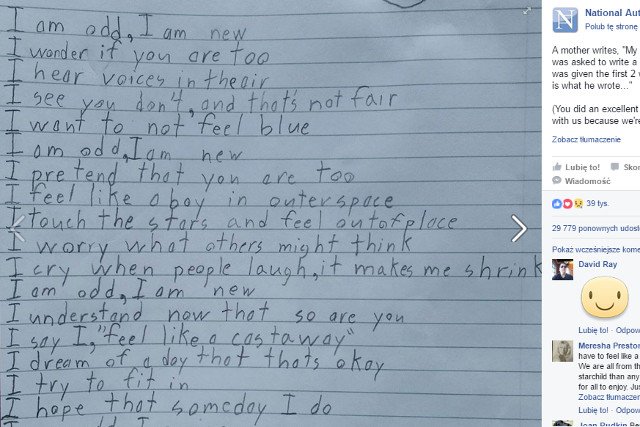 I am odd, I am new
I wonder if you are too
I hear voices in theair
I see you don't, and that's not fair
I want to not feel blue
I am odd, I am new
I pretend that you are too
I feel like a boy in outerspace
I touch the stars and feel outofplace
I worry what others might think
I cry when people laugh, it makes me shrink
I am odd, I am new
I understand now that so are you
I say I, "feel like a castaway"
I dream of a day that thats okay
I try to fit in
I hope that someday I do
National Aut
Polub tę stronę
A mother writes, "My
was asked to write a
was given the first 2
is what he wrote..."
(You did an excellent
with us because we're
Zobacz tłumaczenie
Lubię to!
Wiadomość
39 tys.
29 779 ponownych udost
Pokaż wcześniejsze kome
David Ray
Lubię to! · Odpow
Meresha Prestor
have to feel like a
We are all from th
starchild than any
for all to enjoy. Jus
Zobacz tłumaczenie
Lubię to! · Odpow